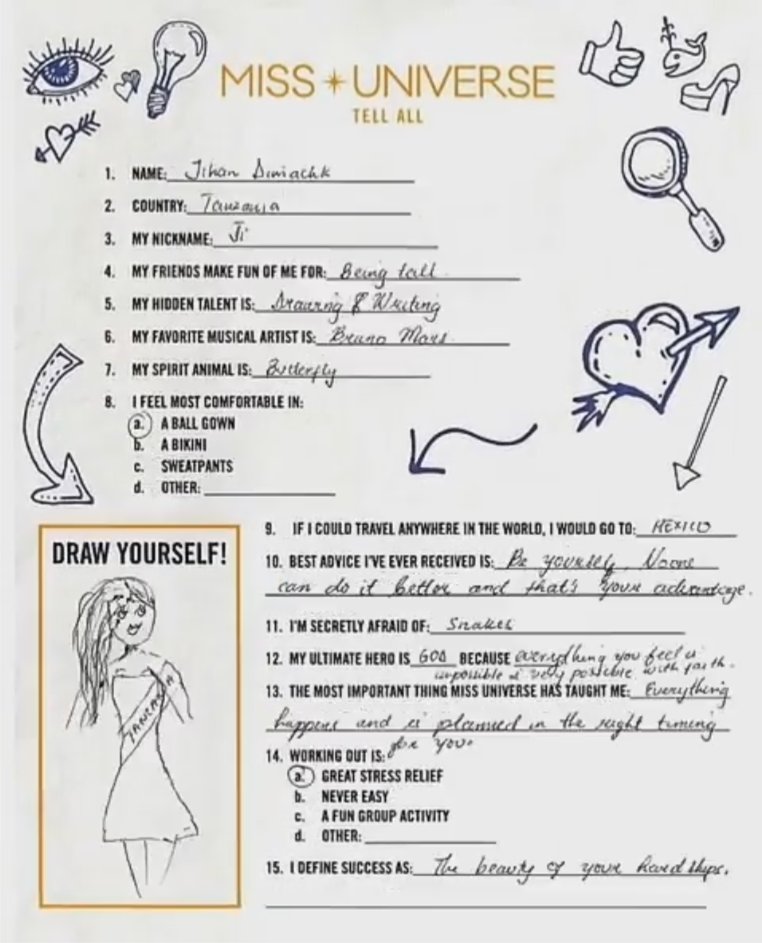 MISS UNIVERSE
TELL ALL
1. NAME: Jihan Dimachk
2. COUNTRY: Tanzania
3. MY NICKNAME: Ji
4. MY FRIENDS MAKE FUN OF ME FOR: Being tall
5. MY HIDDEN TALENT IS: Drawing & Writing
6. MY FAVORITE MUSICAL ARTIST IS: Bruno Mars
7. MY SPIRIT ANIMAL IS: Butterfly
8. I FEEL MOST COMFORTABLE IN:
a. A BALL GOWN
b. A BIKINI
c. SWEATPANTS
d. OTHER:
DRAW YOURSELF!
TANZANIA
9. IF I COULD TRAVEL ANYWHERE IN THE WORLD, I WOULD GO TO: MEXICO
10. BEST ADVICE I'VE EVER RECEIVED IS: Be yourself, Noone
can do it better and that's your advantage.
11. I'M SECRETLY AFRAID OF: Snakes
12. MY ULTIMATE HERO IS GOD BECAUSE everything you feel is
impossible is very possible with faith.
13. THE MOST IMPORTANT THING MISS UNIVERSE HAS TAUGHT ME: Everything
happens and is planned in the right timing
for you.
14. WORKING OUT IS:
a. GREAT STRESS RELIEF
b. NEVER EASY
c. A FUN GROUP ACTIVITY
d. OTHER:
15. I DEFINE SUCCESS AS: The beauty of your hardships.